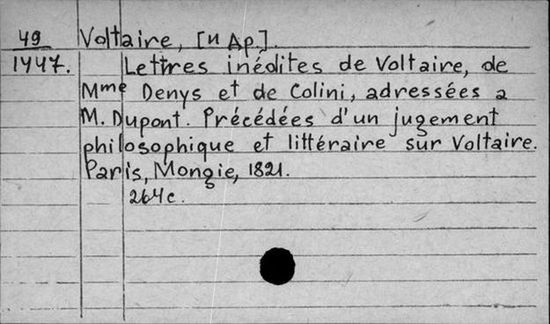 49 Voltaire, [и др].
1447. Lettres inédites de Voltaire, de
Mme Denys et de Colini, adressées a
M. Dupont. Précédées d'un jugement
philosophique et littéraire sur Voltaire.
Paris, Mongie, 1821.
264c.